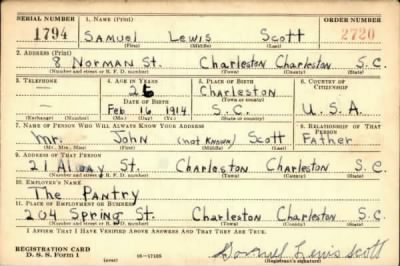 SERIAL NUMBER 1. NAME (Print) ORDER NUMBER
1794 Samuel Lewis Scott 2720
(First) (Middle) (Last)
2. ADDRESS (Print)
8 Norman St. Charleston Charleston S.C.
(Number and street or R. F. D. number) (Town) (County) (State)
3. TELEPHONE 4. AGE IN YEARS 5. PLACE OF BIRTH 6. COUNTRY OF CITIZENSHIP
26 Charleston
(Town or county)
DATE OF BIRTH
Feb 16 1914 S.C. U.S.A.
(Exchange) (Number) (Mo.) (Day) (Yr.) (State or country)
7. NAME OF PERSON WHO WILL ALWAYS KNOW YOUR ADDRESS 8. RELATIONSHIP OF THAT PERSON
Mr. John (not known) Scott Father
(Mr., Mrs., Miss) (First) (Middle) (Last)
9. ADDRESS OF THAT PERSON
21 St. Charleston Charleston S.C.
(Number and street or R. F. D. number) (Town) (County) (State)
10. EMPLOYER'S NAME
The Pantry
11. PLACE OF EMPLOYMENT OR BUSINESS
204 Spring St. Charleston Charleston S.C.
(Number and street or R. F. D. number) (Town) (County) (State)
I AFFIRM THAT I HAVE VERIFIED ABOVE ANSWERS AND THAT THEY ARE TRUE.
REGISTRATION CARD
D. S. S. Form 1 (over) 16-17105 Samuel Lewis Scott
(Registrant's signature)